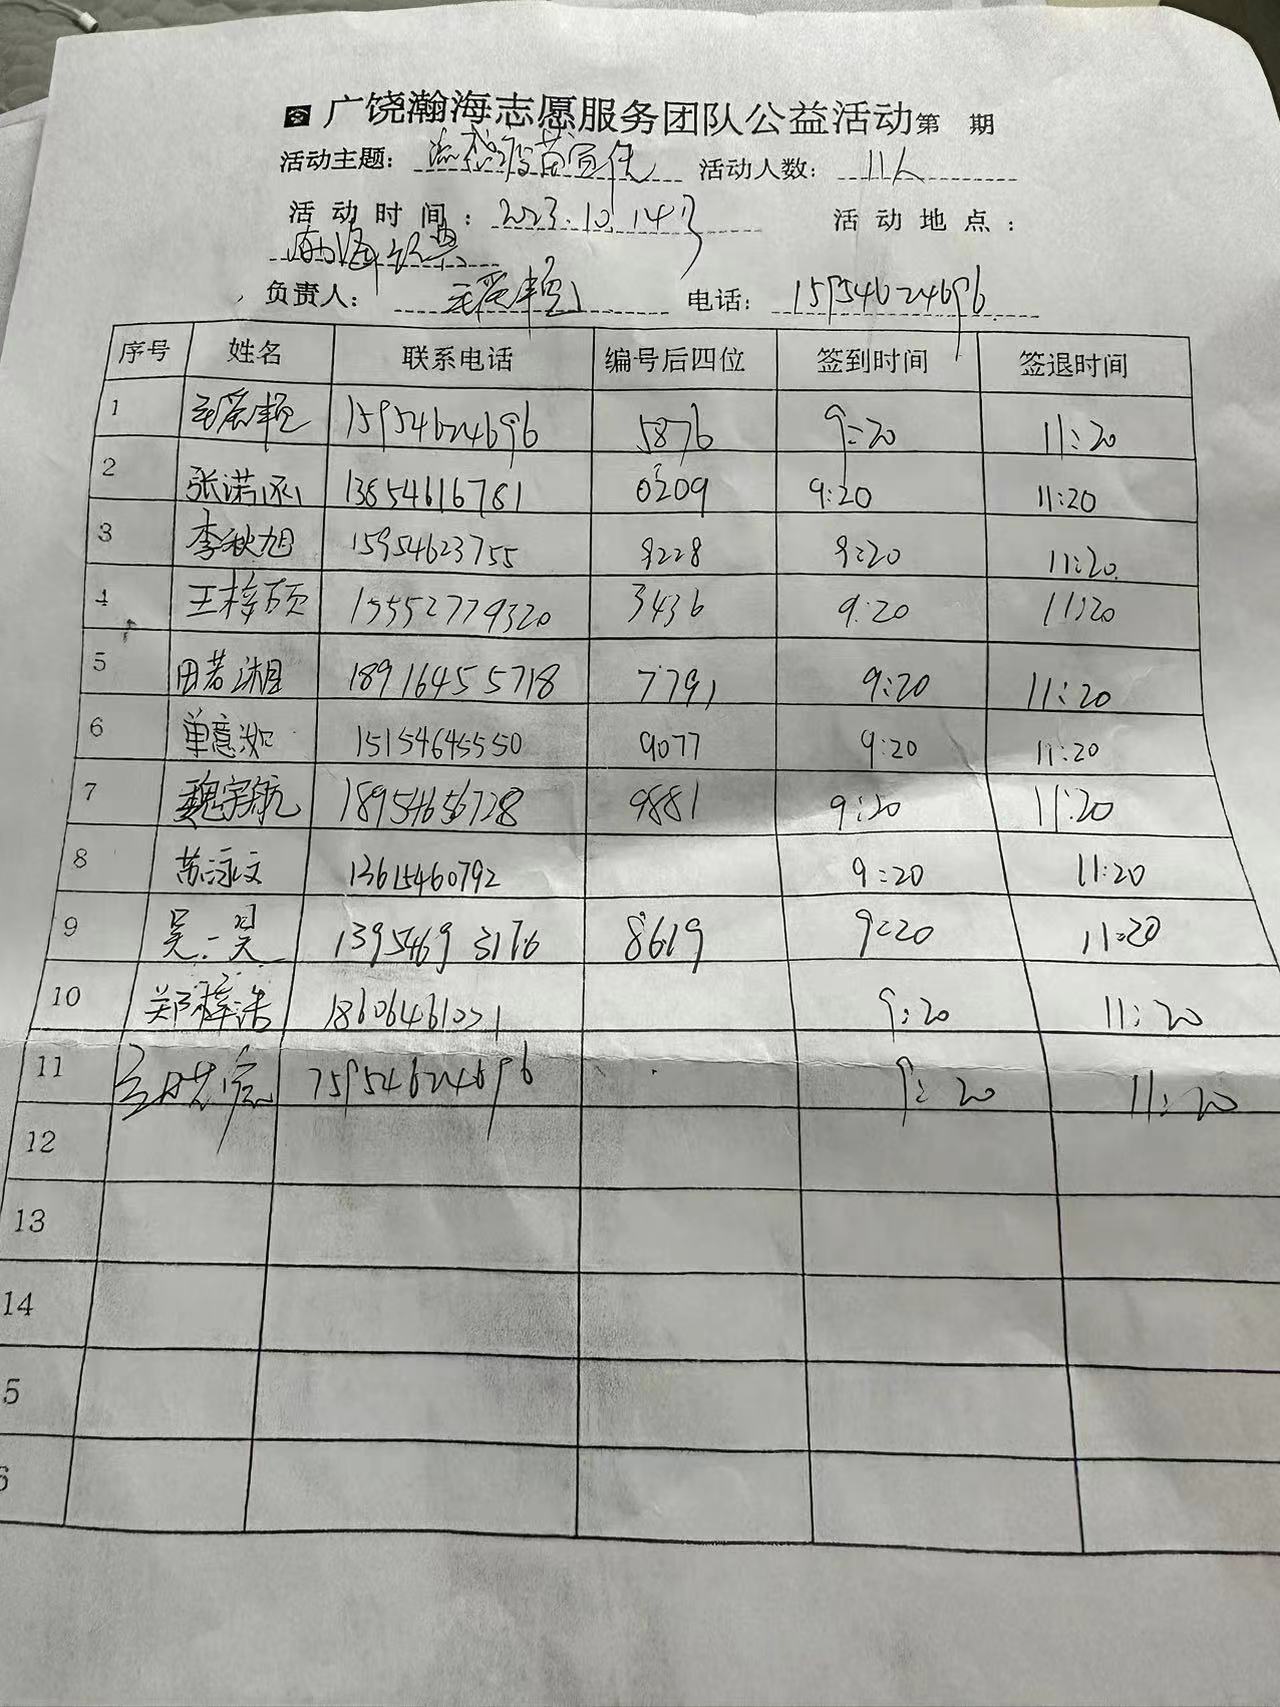 广饶瀚海志愿服务团队公益活动第 期
活动主题：流感疫苗宣传 活动人数：11人
活动时间：2023.10.14号 活动地点：
负责人： 电话：15954624696
序号 姓名 联系电话 编号后四位 签到时间 签退时间
1 15954624696 5876 9:20 11:20
2 张诺 13854616781 0209 9:20 11:20
3 李秋旭 15954623755 9228 9:20 11:20
4 王梓硕 15552779320 3436 9:20 11:20
5 田若湘 18916455718 7791 9:20 11:20
6 单意汝 15154645550 9077 9:20 11:20
7 魏宇航 18954656728 9881 9:20 11:20
8 苏泳文 13615460792 9:20 11:20
9 吴一昊 13954693176 8619 9:20 11:20
10 郑梓浩 9:20 11:20
11 9:20 11:20
12
13
14
5
6